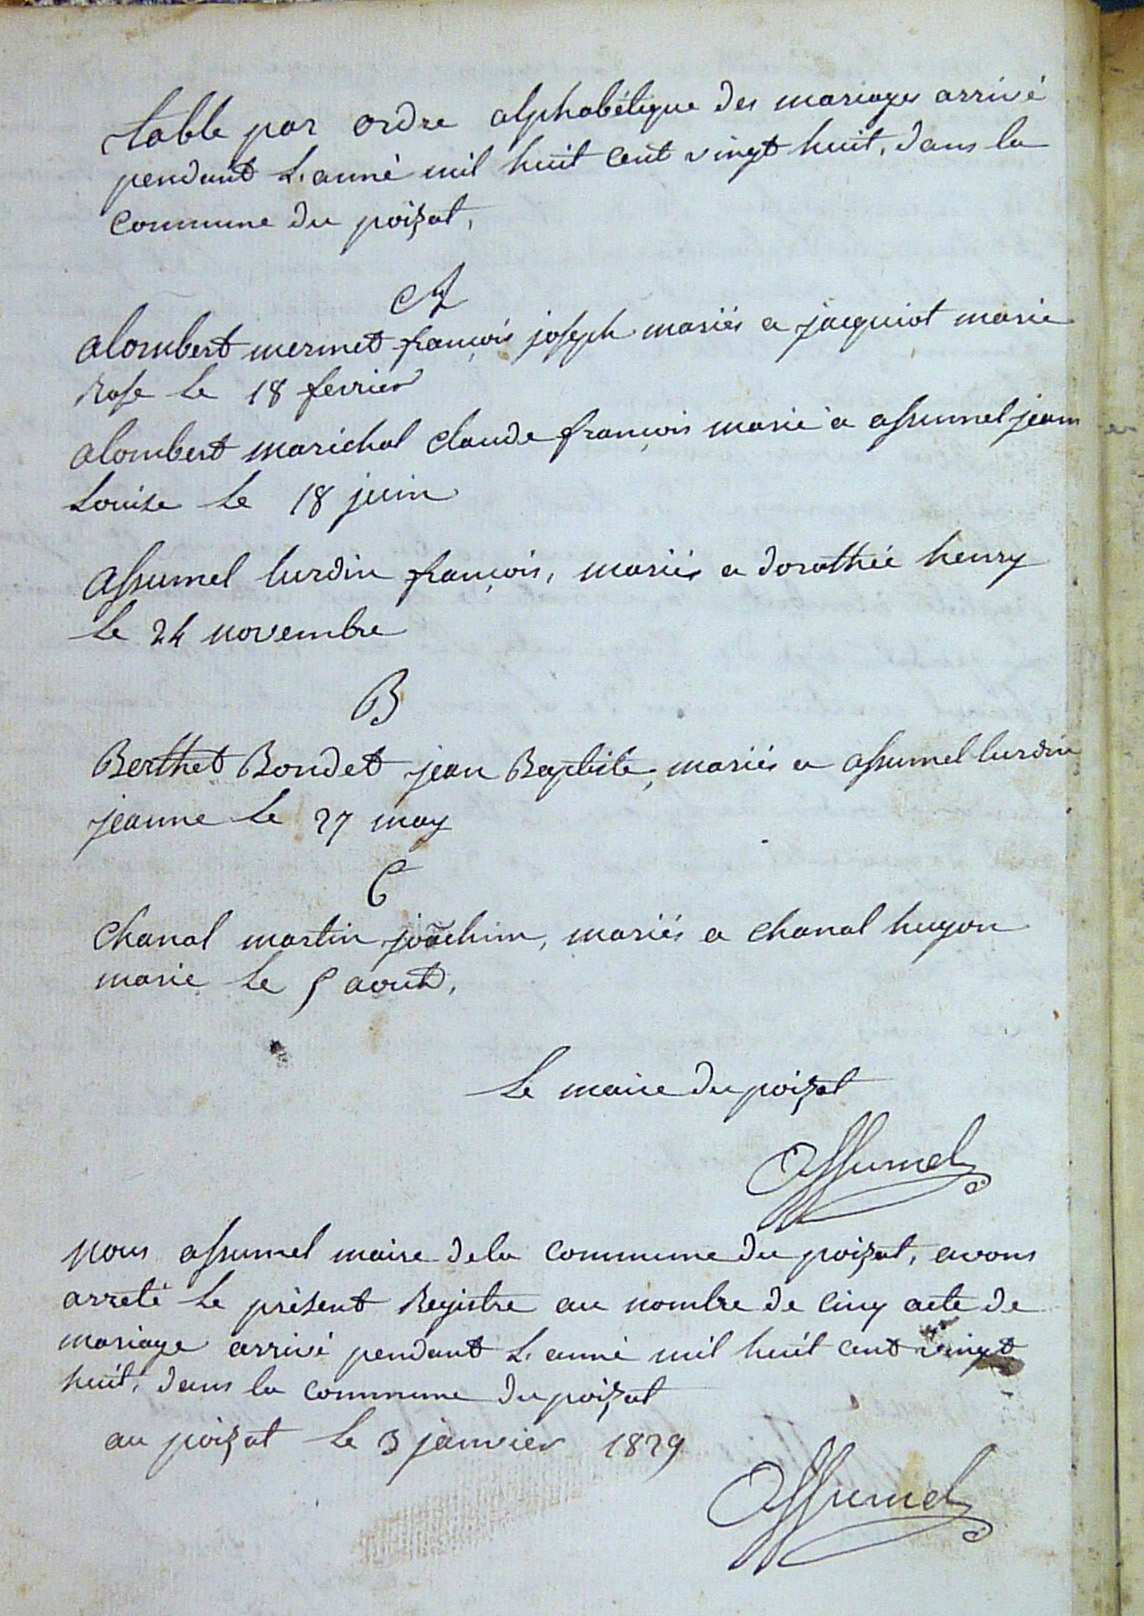 table par ordre alphabétique des mariages arrivé
pendant L'anné mil huit cent vingt huit, dans la
commune du poizat,
A
alombert mermet françois joseph mariés a jacquiot marie
Rose le 18 fevrier
alombert marichal claude françois marié a assumel jeanne
Louise Le 18 juin
assumel lurdin françois, mariés a dorothée henry
Le 24 novembre
B
Berthet Bondet jean Baptiste, mariés a assumel lurdin
jeanne Le 27 may
C
chanal martin joachim, mariés a chanal hugon
marie Le 5 aout,
Le maire du poizat
Assumel
Nous assumel maire de la commune du poizat, avons
arreté Le présent Registre au nombre de cinq acte de
mariage arrivé pendant L'anné mil huit cent vingt
huit, dans la commune du poizat
au poizat Le 3 janvier 1829
Assumel